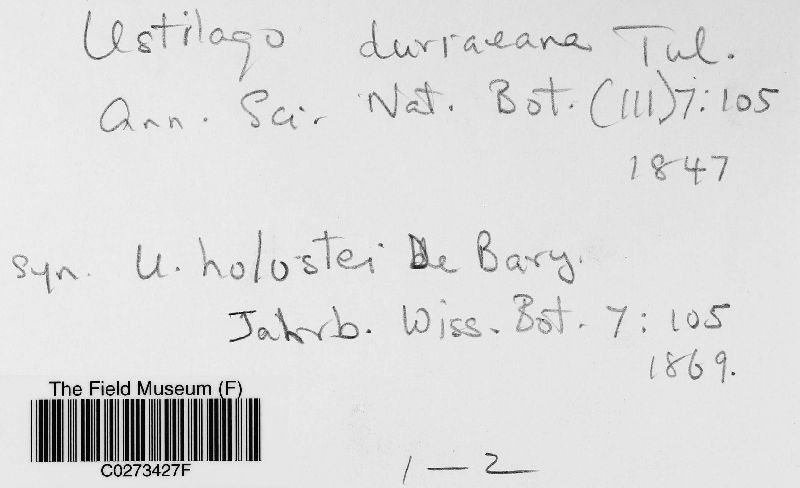 Ustilago duriaeana Tul.
Ann. Sci. Nat. Bot. (III) 7: 105
1847
syn. U. holostei De Bary.
Jahrb. Wiss. Bot. 7: 105
1869.
The Field Museum (F)
C0273427F
1 — 2